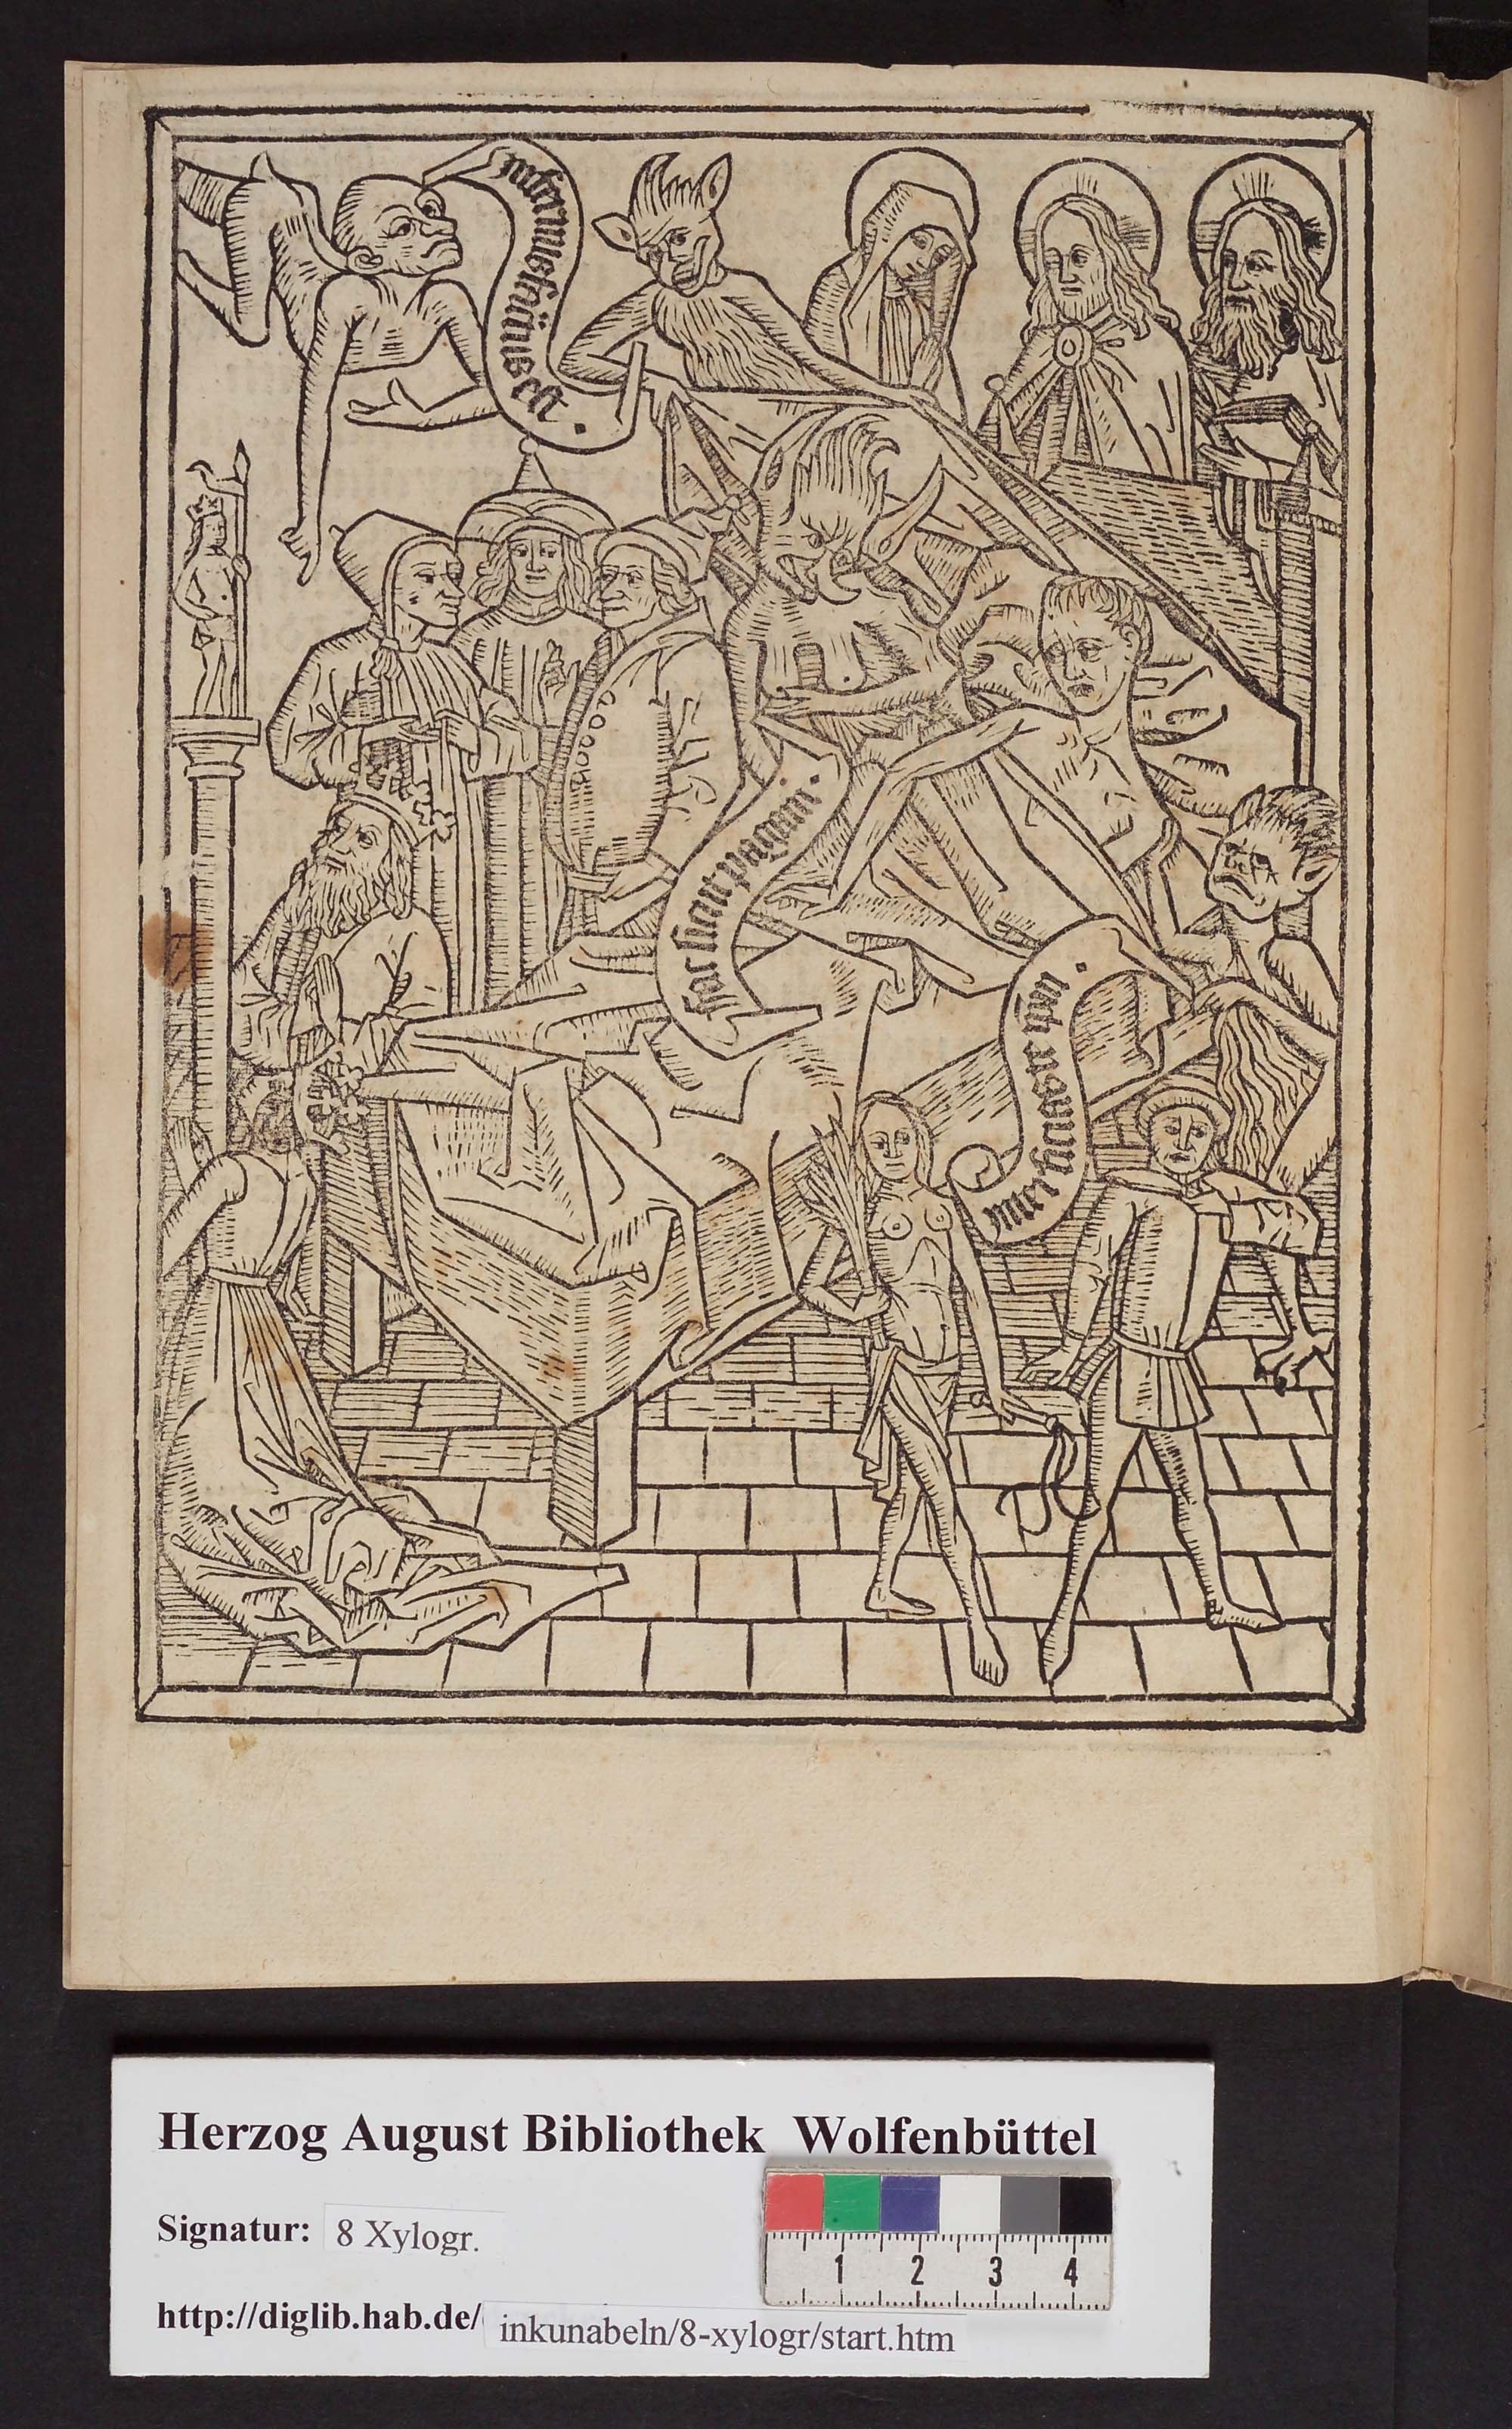 infernus fractus est.
fac sicut pagani.
interficias te ipsum.
Herzog August Bibliothek Wolfenbüttel
Signatur: 8 Xylogr.
http://diglib.hab.de/ inkunabeln/8-xylogr/start.htm
1 2 3 4